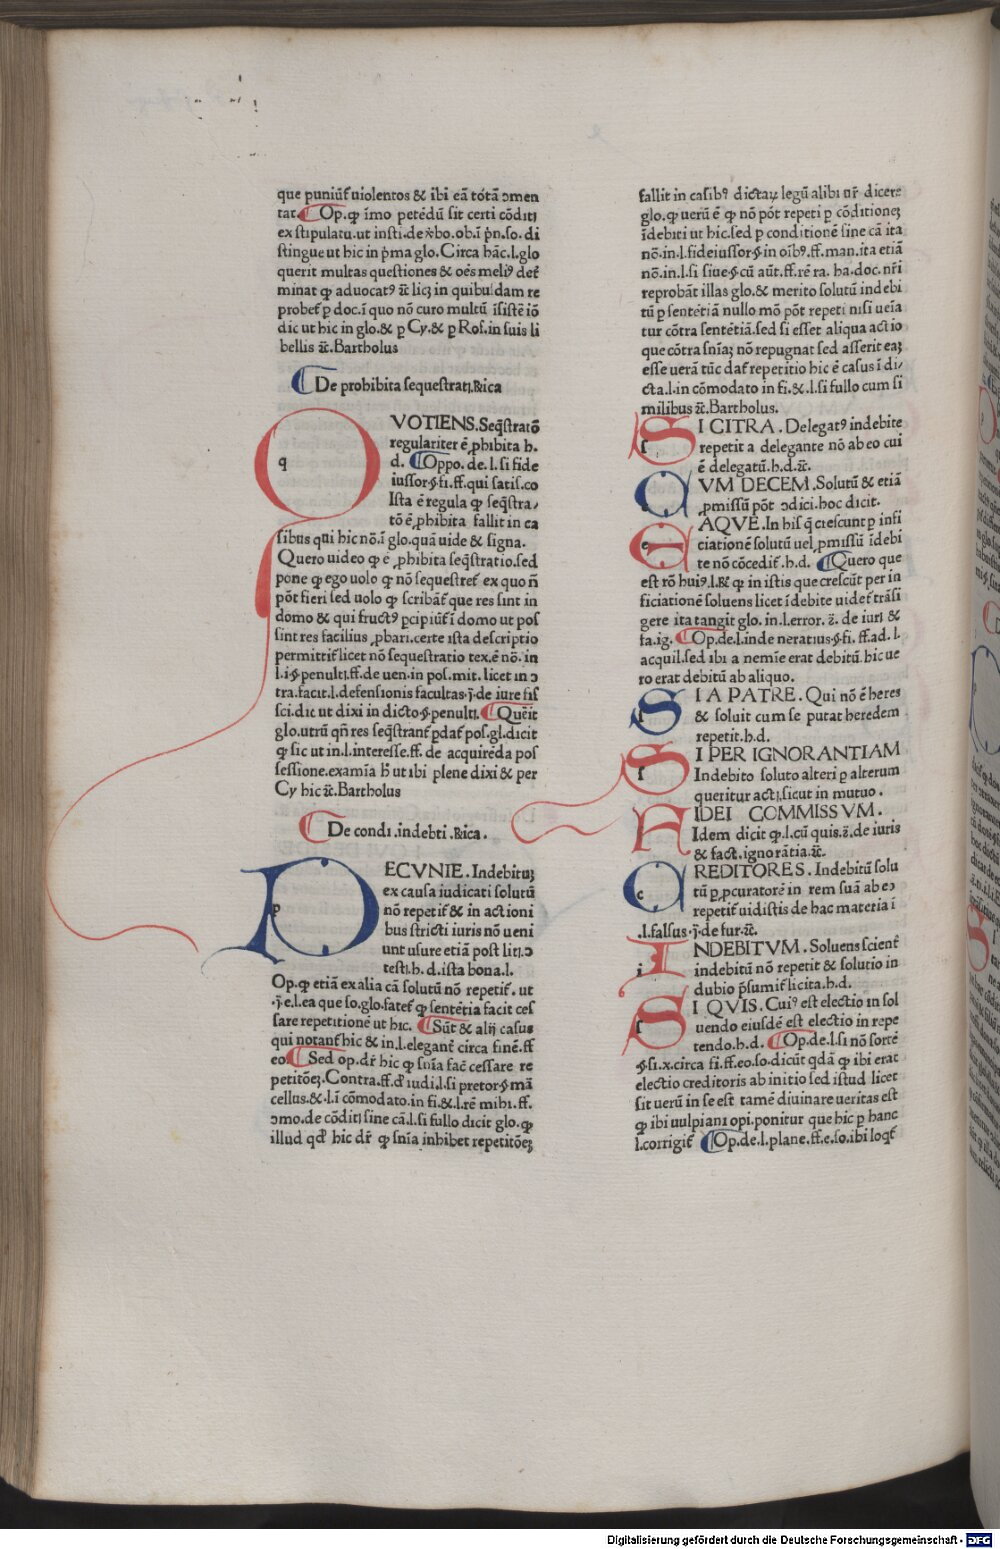 que puniūt᷑ uiolentos & ibi eā tótā ɔmen
tat᷑. Op. ꝙ īmo petēdū sit certi cōditi
ex stipulatu. ut insti. de v̄bo. ob. ī pn̄. so. di
stingue ut hic in p̄ma glo. Circa hāc. l. glo
querit multas questiones & oēs meliꝰ det᷑
minat ꝙ aduocatꝰ &̄c̄ licꝫ in quibusdam re
probet᷑ p doc. ī quo nō curo multū īsistē iō
dic ut hic in glo. & p Cy. & p Ros. in suis li
bellis &̄c̄. Bartholus
De prohibita sequestrati. Rica
QVOTIENS. Seq̄stratō
regulariter ē ꝓhibita h.
d. Oppo. de. l. si fide
iussor. §. fi. ff. qui satis. co
Ista ē regula ꝙ seq̄stra/
tō ē ꝓhibita fallit in ca
sibus qui hic nō. ī glo. quā uide & signa.
Quero uideo ꝙ ē ꝓhibita seq̄stratio. sed
pone ꝙ ego uolo ꝙ nō sequestret᷑ ex quo n̄
pōt fieri sed uolo ꝙ scribāt᷑ que res sint in
domo & qui fructꝰ ꝑcipiūt᷑ ī domo ut pos
sint res facilius ꝓbari. certe ista descriptio
permittit᷑ licet nō sequestratio tex. ē nō. in
l. i. §. penulti. ff. de uen. in pos. mit. licet in ɔ
tra. facit. l. defensionis facultas. j. de iure fis
sci. dic ut dixi in dicto. §. penulti. Quēit
glo. utrū qn̄ res seq̄strant᷑ ꝑdat᷑ pos. gl. dicit
ꝙ sic ut in. l. interesse. ff. de acquirēda pos
sessione. examīa h̄ ut ibi plene dixi & per
Cy hic &̄c̄. Bartholus
De condi. indebti. Rica.
PECVNIE. Indebituꝫ
ex causa iudicati solutū
nō repetit᷑ & in actioni
bus stricti iuris nō ueni
unt usure etiā post liti. ɔ
testi. h. d. ista bona. l.
Op. ꝙ etiā ex alia cā solutū nō repetit᷑. ut
. j. e. l. ea que so. glo. fatet᷑ ꝙ sentētia facit ces
sare repetitionē ut hic. Sūt & alij casus
qui notant᷑ hic & in. l. elegant᷑ circa finē. ff
eo. Sed op. dr̄ hic ꝙ snīa fac̄ cessare re
petitōeꝫ. Contra. ff. d̄ iudi. l. si pretor. §. mā
cellus. & l. ī cōmodato. in fi. & l. rē mihi. ff.
ɔmo. de cōditi sine cā. l. si fullo dicit glo. ꝙ
illud qd̄ hic dr̄ ꝙ snīa inhibet repetitōeꝫ
fallit in casibꝰ dictaꝝ legū alibi nr̄ dicere
glo. ꝙ uerū ē ꝙ nō pōt repeti p cōditioneꝫ
īdebiti ut hic. sed p conditionē sine cā ita
nō. in. l. fideiussor. §. in oībꝰ. ff. man. ita etiā
nō. in. l. si siue. §. cū aūt. ff. rē ra. ha. doc. nr̄i
reprobāt illas glo. & merito solutū indebi
tū p sentētiā nullo mō pōt repeti nisi ueīa
tur cōtra sentētiā. sed si esset aliqua actio
que cōtra snīaꝫ nō repugnat sed asserit eaꝫ
esse uerā tūc dat᷑ repetitio hic ē casus ī di/
cta. l. in cōmodato in fi. & l. si fullo cum si
milibus &̄c̄. Bartholus.
SI CITRA. Delegatꝰ indebite
repetit a delegante nō ab eo cui
ē delegatū. h. d. &̄c̄.
QVM DECEM. Solutū & etiā
ꝓmissū pōt ɔdici. hoc dicit.
EAQVE. In his q̄ crescunt p infi
ciationē solutū uel ꝓmissū īdebi
te nō cōcedit᷑. h. d. Quero que
est rō huiꝰ. l. & ꝙ in istis que crescūt per in
ficiationē soluens licet īdebite uidet᷑ trāsi
gere ita tangit glo. in. l. error. s̄. de iuri &
fa. ig. Op. de. l. inde neratius. §. fi. ff. ad. l.
acquil. sed ibi a nemīe erat debitū. hic ue
ro erat debitū ab aliquo.
SI A PATRE. Qui nō ē heres
& soluit cum se putat heredem
repetit. h. d.
SI PER IGNORANTIAM
Indebito soluto alteri p alterum
queritur acti. sicut in mutuo.
FIDEI COMMISSVM.
Idem dicit ꝙ. l. cū quis. s̄. de iuris
& fact. ignorātia. &̄c̄.
CREDITORES. Indebitū solu
tū ꝑ ꝓcuratorē in rem suā ab eo
repetit᷑ uidistis de hac materia ī
. l. falsus. j. de fur. &̄c̄.
INDEBITVM. Soluens scient᷑
indebitū nō repetit & solutio in
dubio p̄sumit᷑ licita. h. d.
SI QVIS. Cuiꝰ est electio in sol
uendo eiusdē est electio in repe
tendo. h. d. Op. de. l. si nō sortē
§. si. x. circa fi. ff. eo. so. dicūt qdā ꝙ ibi erat
electio creditoris ab initio sed istud licet
sit uerū in se est tamē diuinare ueritas est
ꝙ ibi uulpiani opi. ponitur que hic p hanc
l. corrigit᷑ Op. de. l. plane. ff. e. so. ibi loqt᷑
Digitalisierung gefördert durch die Deutsche Forschungsgemeinschaft - DFG